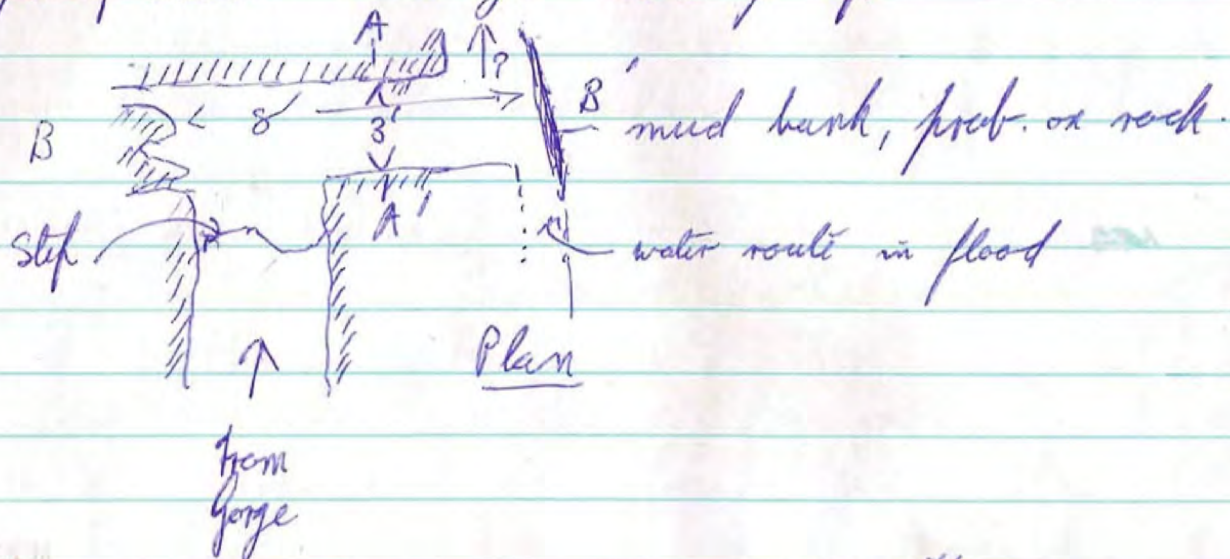 A
?
B'
8'
3'
B
mud bank, prob. on rock.
A'
Step
water route in flood
Plan
from
Gorge